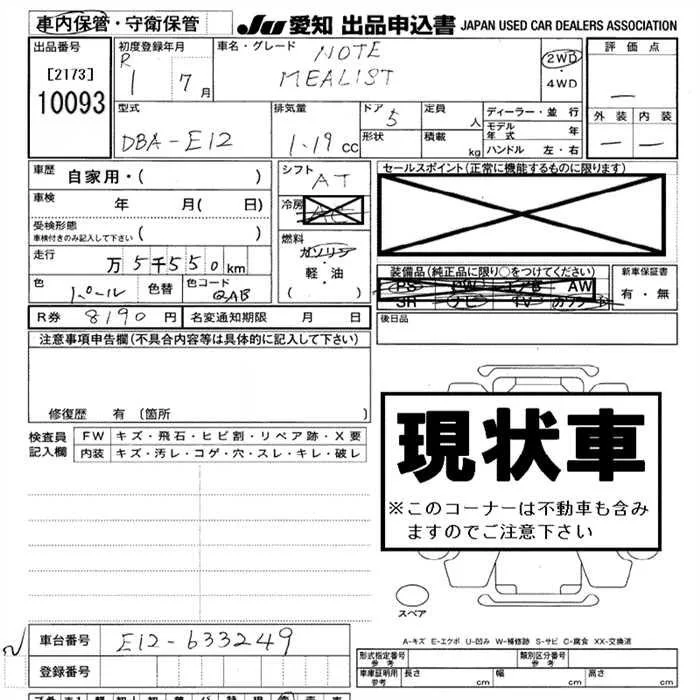 車内保管・守衛保管 JU 愛知 出品申込書 JAPAN USED CAR DEALERS ASSOCIATION
出品番号
[2173]
10093
初度登録年月
R 1 7月
車名・グレード
NOTE
MEALIST
2WD
・
4WD
評価点
—
外装 内装
— —
型式
DBA-E12
排気量
1.19cc
ドア 5
形状
定員 人
積載 kg
ディーラー・並行
モデル年式 年
ハンドル 左・右
車歴 自家用・( )
車検 年 月( 日)
受検形態
車検付きのみ記入して下さい ( )
走行 万5千550km
色 パール 色替 色コード QAB
シフト AT
冷房 AC
燃料
ガソリン
・
軽・油
( )
セールスポイント(正常に機能するものに限ります)
装備品(純正品に限り○をつけてください)
PS PW エアB AW
SR ナビ TV カワシート
新車保証書
有・無
R券 8190円 名変通知期限 月 日
後日品
注意事項申告欄(不具合内容等は具体的に記入して下さい)
修復歴 有〔箇所 〕
検査員記入欄
FW キズ・飛石・ヒビ割・リペア跡・X要
内装 キズ・汚レ・コゲ・穴・スレ・キレ・破レ
現状車
※このコーナーは不動車も含み
ますのでご注意下さい
スペア
A-キズ E-エクボ U-凹み W-補修跡 S-サビ C-腐食 XX-交換済
車台番号 E12-633249
登録番号
形式指定番号 参考
類別区分番号 参考
車庫証明用 参考 長さ cm 幅 cm 高さ cm